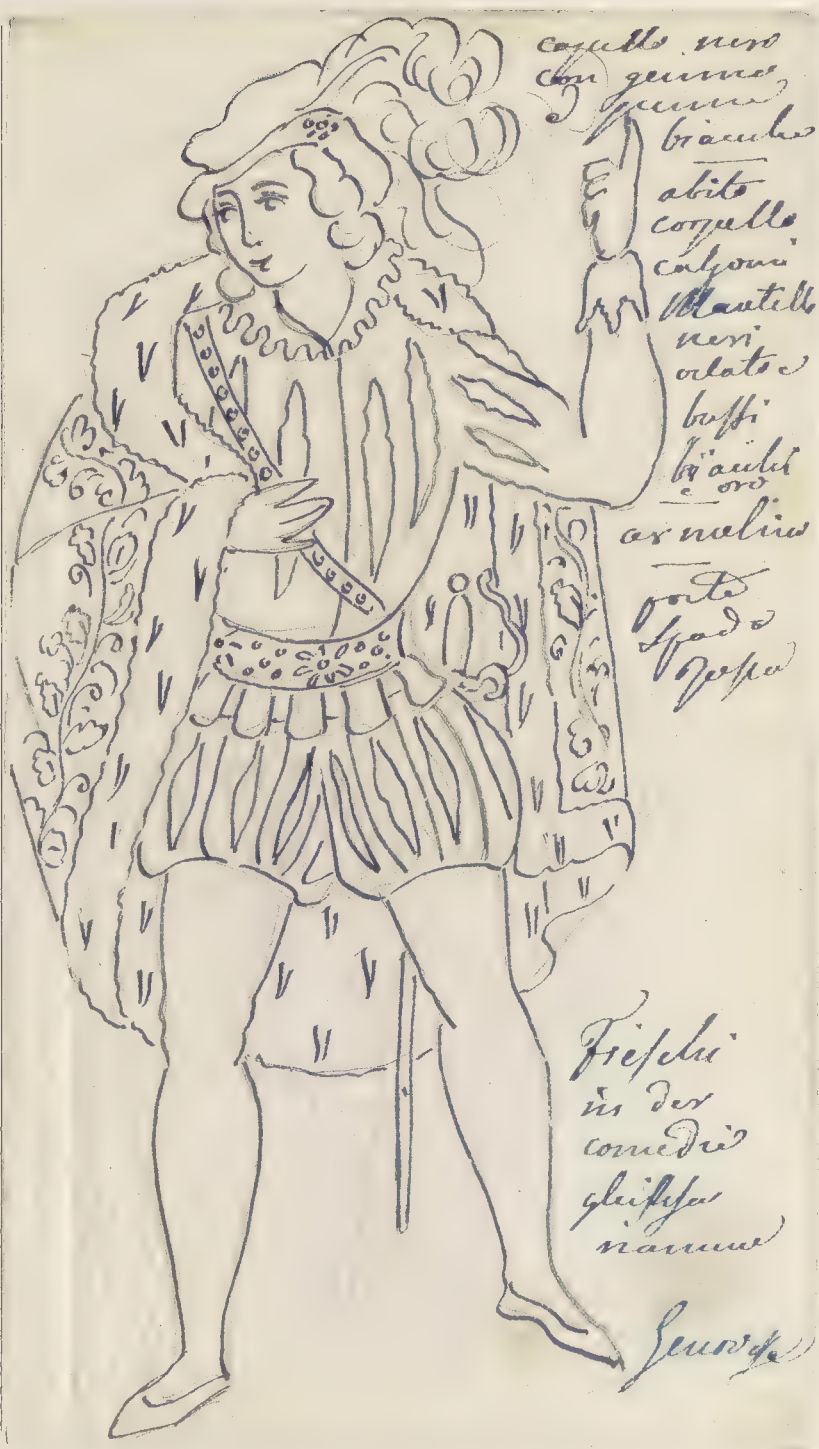 capello nero
con gemme
piume
bianche
abito
corpetto
calzoni
Mantello
neri
orlate
buffi
bianchi
e oro
armelino
porta
spada
Fieschi
in der
comedie
gleiches
namme
Genova